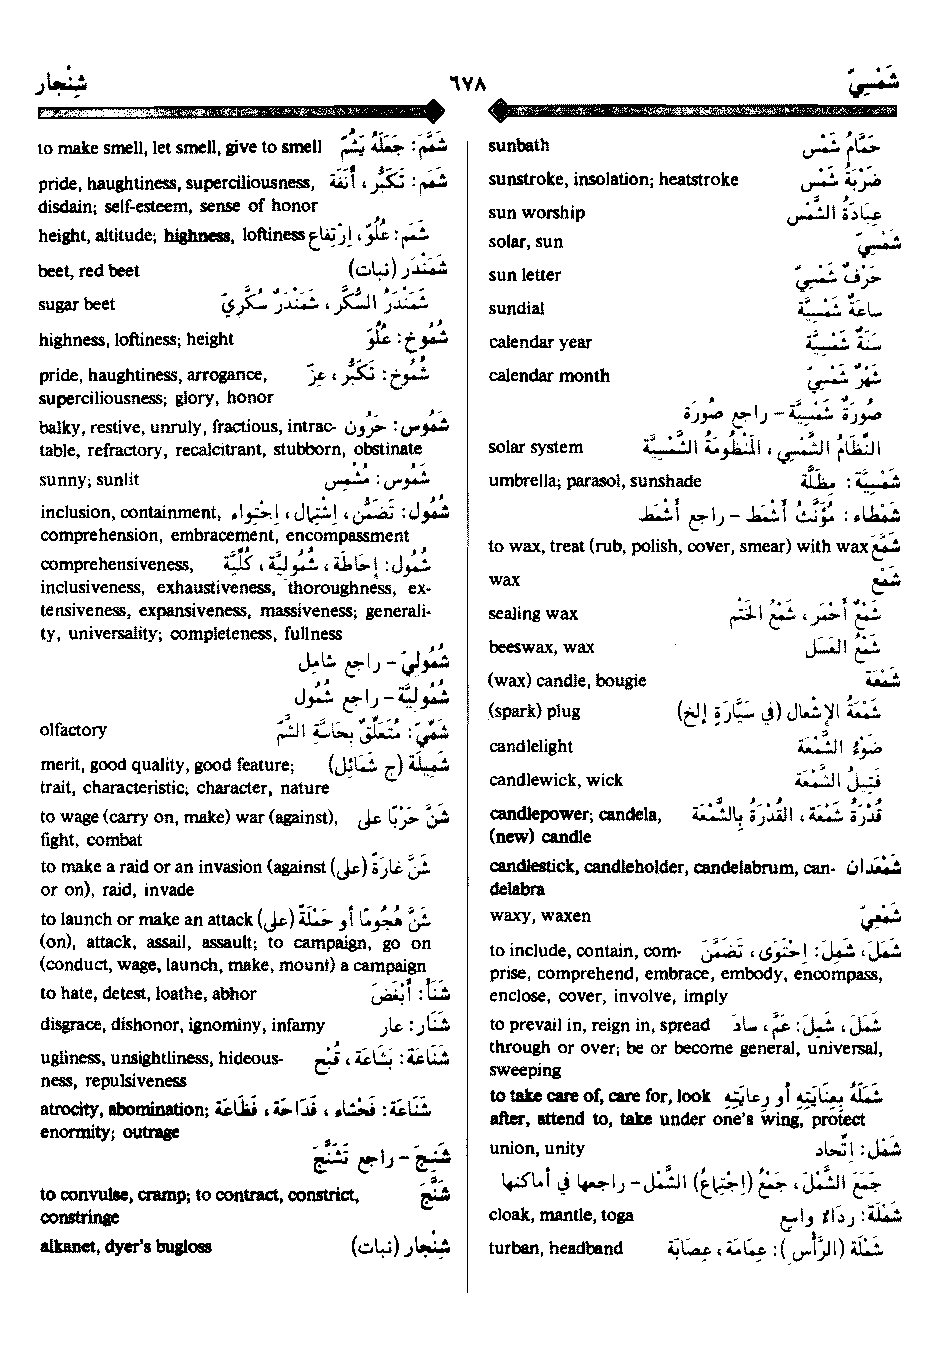 شَمْسِيّ ٦٧٨ شِنْجار
حَمَّامُ شَمْس sunbath
ضَرْبَةُ شَمْس sunstroke, insolation; heatstroke
عِبَادَةُ الشَّمْس sun worship
شَمْسِيّ solar, sun
حَرْفٌ شَمْسِيّ sun letter
ساعَةٌ شَمْسِيَّة sundial
سَنَةٌ شَمْسِيَّة calendar year
شَهْرٌ شَمْسِيّ calendar month
صُورَةٌ شَمْسِيَّة - راجع صُورَة
النِّظَامُ الشَّمْسِي ، المَنْظُومَةُ الشَّمْسِيَّة solar system
شَمْسِيَّة : مِظَلَّة umbrella; parasol, sunshade
شَمْطاء : مُؤَنَّثُ أَشْمَط - راجع أَشْمَط
شَمَّعَ to wax, treat (rub, polish, cover, smear) with wax
شَمْع wax
شَمْعٌ أَحْمَر ، شَمْعُ الخَتْم sealing wax
شَمْعُ العَسَل beeswax, wax
شَمْعَة (wax) candle, bougie
شَمْعَةُ الإشْعال (في سَيَّارَةٍ إلخ) (spark) plug
ضَوْءُ الشَّمْعَة candlelight
فَتِيلُ الشَّمْعَة candlewick, wick
قُدْرَةُ شَمْعَة ، القُدْرَةُ بِالشَّمْعَة candlepower; candela,
(new) candle
شَمْعَدان candlestick, candleholder, candelabrum, can-
delabra
شَمْعِيّ waxy, waxen
شَمَلَ ، شَمِلَ : اِحْتَوَى ، تَضَمَّنَ to include, contain, com-
prise, comprehend, embrace, embody, encompass,
enclose, cover, involve, imply
شَمَلَ ، شَمِلَ : عَمَّ ، سادَ to prevail in, reign in, spread
through or over; be or become general, universal,
sweeping
شَمَلَهُ بِعِنَايَتِهِ أو رِعَايَتِهِ to take care of, care for, look
after, attend to, take under one's wing, protect
شَمْل : اِتِّحاد union, unity
جَمَعَ الشَّمْلَ ، جَمْعُ (اِجْتِماعُ) الشَّمْل - راجعها في أماكنها
شَمْلَة : رِدَاءٌ واسِع cloak, mantle, toga
شَمْلَة (الرَّأْس) : عِمَامَة ، عِصَابَة turban, headband
شَمَّمَ : جَعَلَهُ يَشُمّ to make smell, let smell, give to smell
شَمَم : تَكَبُّر ، أَنَفَة pride, haughtiness, superciliousness,
disdain; self-esteem, sense of honor
شَمَم : عُلُوّ ، اِرْتِفاع height, altitude; highness, loftiness
شَمَنْدَر (نبات) beet, red beet
شَمَنْدَرُ السُّكَّر ، شَمَنْدَرٌ سُكَّرِيّ sugar beet
شُمُوخ : عُلُوّ highness, loftiness; height
شُمُوخ : تَكَبُّر ، عِزّ pride, haughtiness, arrogance,
superciliousness; glory, honor
شَمُوس : حَرُون balky, restive, unruly, fractious, intrac-
table, refractory, recalcitrant, stubborn, obstinate
شَمُوس : مُشْمِس sunny; sunlit
شُمُول : تَضَمُّن ، اِشْتِمال ، اِحْتِواء inclusion, containment,
comprehension, embracement, encompassment
شُمُول : إِحَاطَة ، شُمُولِيَّة ، كُلِّيَّة comprehensiveness,
inclusiveness, exhaustiveness, thoroughness, ex-
tensiveness, expansiveness, massiveness; generali-
ty, universality; completeness, fullness
شُمُولِيّ - راجع شامِل
شُمُولِيَّة - راجع شُمُول
شَمِّيّ : مُتَعَلِّقٌ بِحَاسَّةِ الشَّمّ olfactory
شَمِيلَة (ج شَمَائِل) merit, good quality, good feature;
trait, characteristic; character, nature
شَنَّ حَرْبًا على to wage (carry on, make) war (against),
fight, combat
شَنَّ غارَةً (على) to make a raid or an invasion (against
or on), raid, invade
شَنَّ هُجُومًا أو حَمْلَةً (على) to launch or make an attack
(on), attack, assail, assault; to campaign, go on
(conduct, wage, launch, make, mount) a campaign
شَنَأَ : أَبْغَضَ to hate, detest, loathe, abhor
شَنَار : عار disgrace, dishonor, ignominy, infamy
شَنَاعَة : بَشَاعَة ، قُبْح ugliness, unsightliness, hideous-
ness, repulsiveness
شَنَاعَة : فَحْشاء ، فَدَاحَة ، فَظَاعَة atrocity, abomination;
enormity; outrage
شَنِجَ - راجع تَشَنَّجَ
شَنَّجَ to convulse, cramp; to contract, constrict,
constringe
شِنْجار (نبات) alkanet, dyer's bugloss